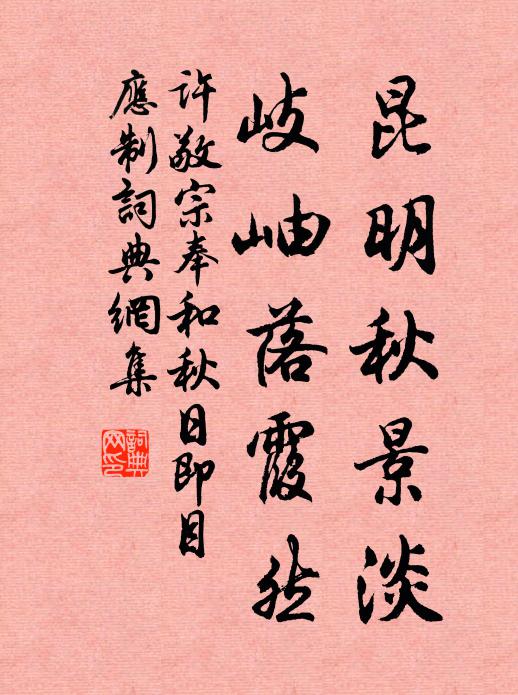 昆明秋景淡
岐岫落霞然
許敬宗奉和秋日即目
應制詞典網集
詞典网印